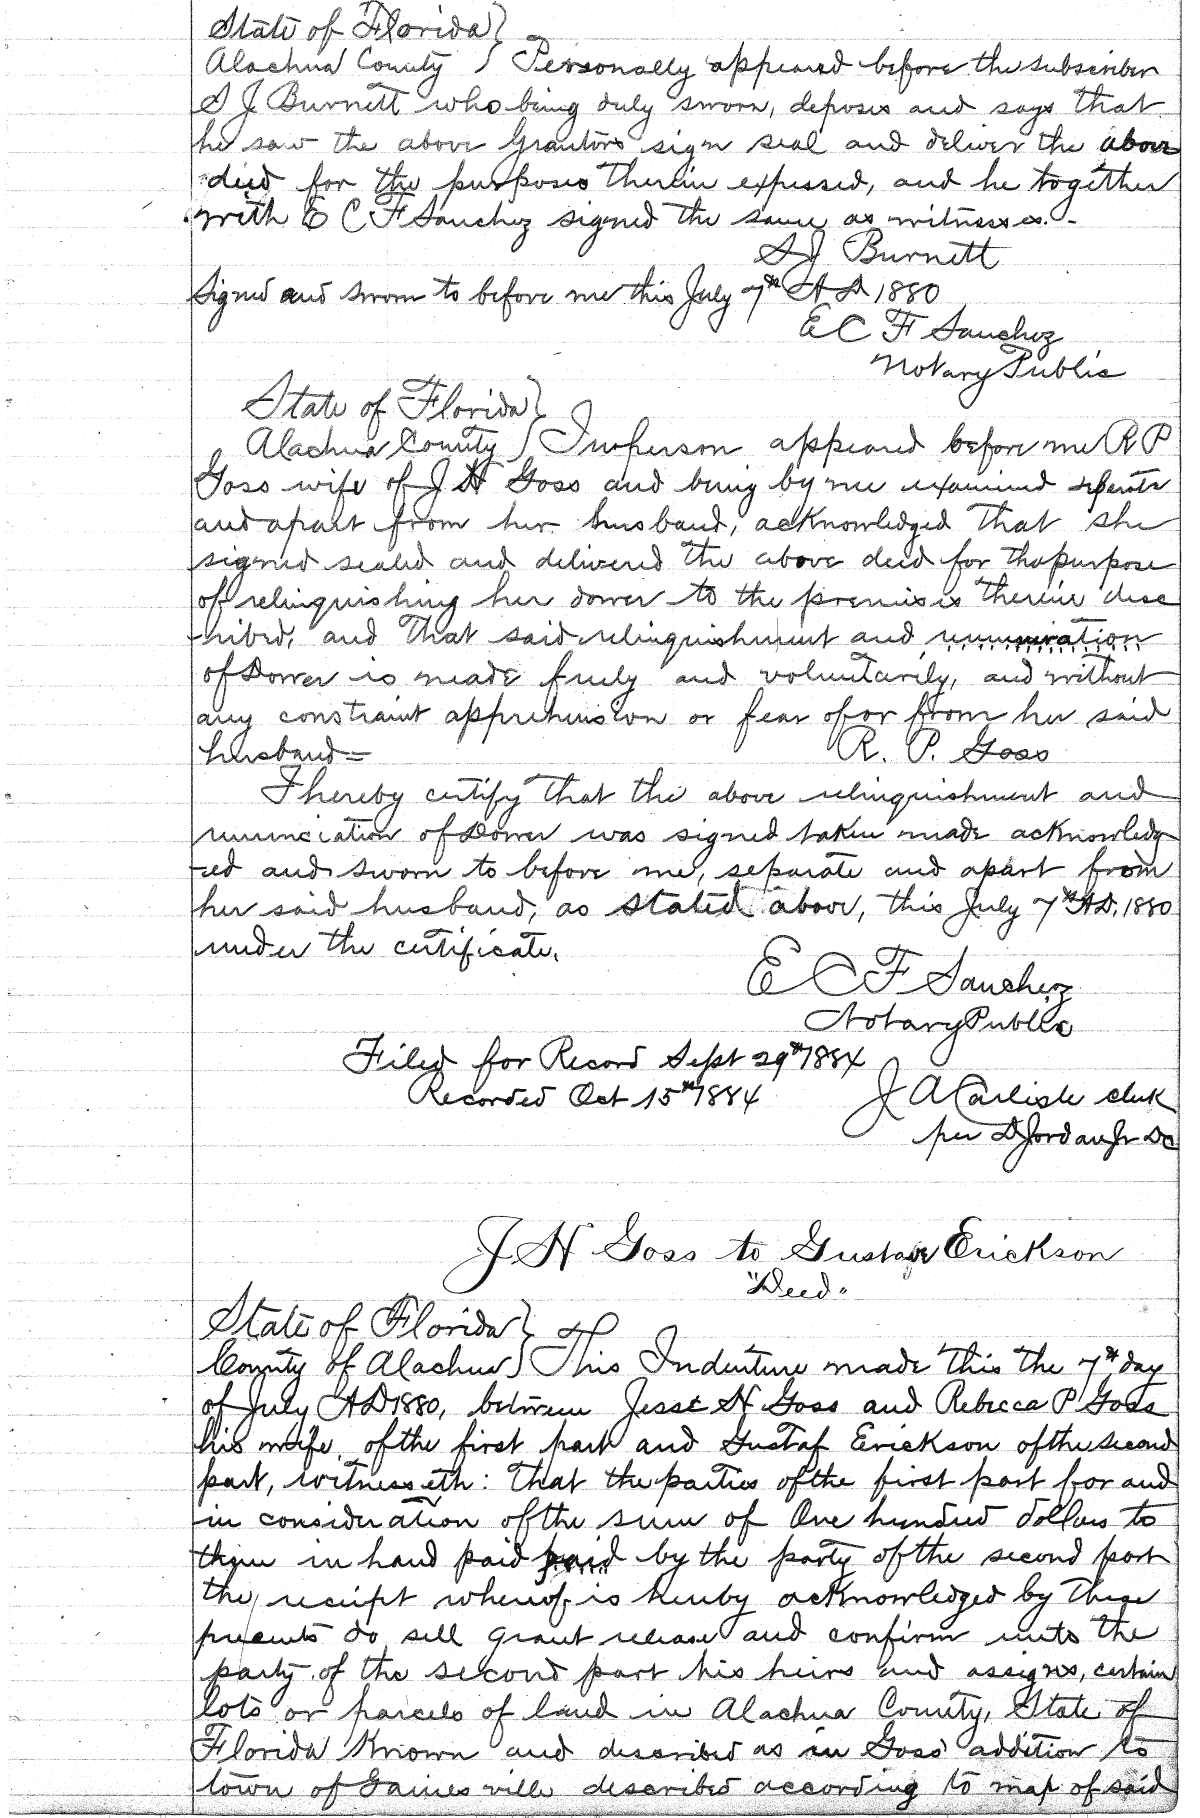 State of Florida }
Alachua County } Personally appeared before the subscriber
S J Burnett who being duly sworn, deposes and says that
he saw the above Grantors sign seal and deliver the above
deed for the purposes therein expessed, and he together
with E C F Sanchez signed the same as witnesses. -
S J Burnett
Signed and sworn to before me this July 7th A D 1880
E C F Sanchez
Notary Public
State of Florida }
Alachua County } In person appeared before me R P
Goss wife of J H Goss and being by me examined separate
and apart from her husband, acknowledged that she
signed sealed and delivered the above deed for the purpose
of relinquishing her dower to the premises therein desc
ribed, and that said relinquishment and
of Dower is made freely and voluntarily, and without
any constraint apprehension or fear of or from her said
husband =
R. P. Goss
I hereby certify that the above relinquishment and
renunciation of Dower was signed taken made acknowledg
ed and sworn to before me, separate and apart from
her said husband, as stated above, this July 7th A D. 1880
under the certificate.
E C F Sanchez
Notary Public
Filed for Record Sept 29th 1884
Recorded Oct 15th 1884
J A Carlisle clerk
per D Jordan Jr DC
J H Goss to Gustave Erickson
"Deed"
State of Florida }
County of Alachua } This Indenture made this the 7th day
of July A D 1880, between Jesse H Goss and Rebecca P Goss
his wife of the first part and Gustaf Erickson of the second
part, witnesseth: That the parties of the first part for and
in consideration of the sum of One hundred dollars to
them in hand paid paid by the party of the second part
the receipt whereof is hereby acknowledged by these
presents do sell grant release and confirm unto the
party of the second part his heirs and assigns, certain
lots or parcels of land in Alachua County, State of
Florida Known and described as in Goss' addition to
town of Gainesville described according to map of said